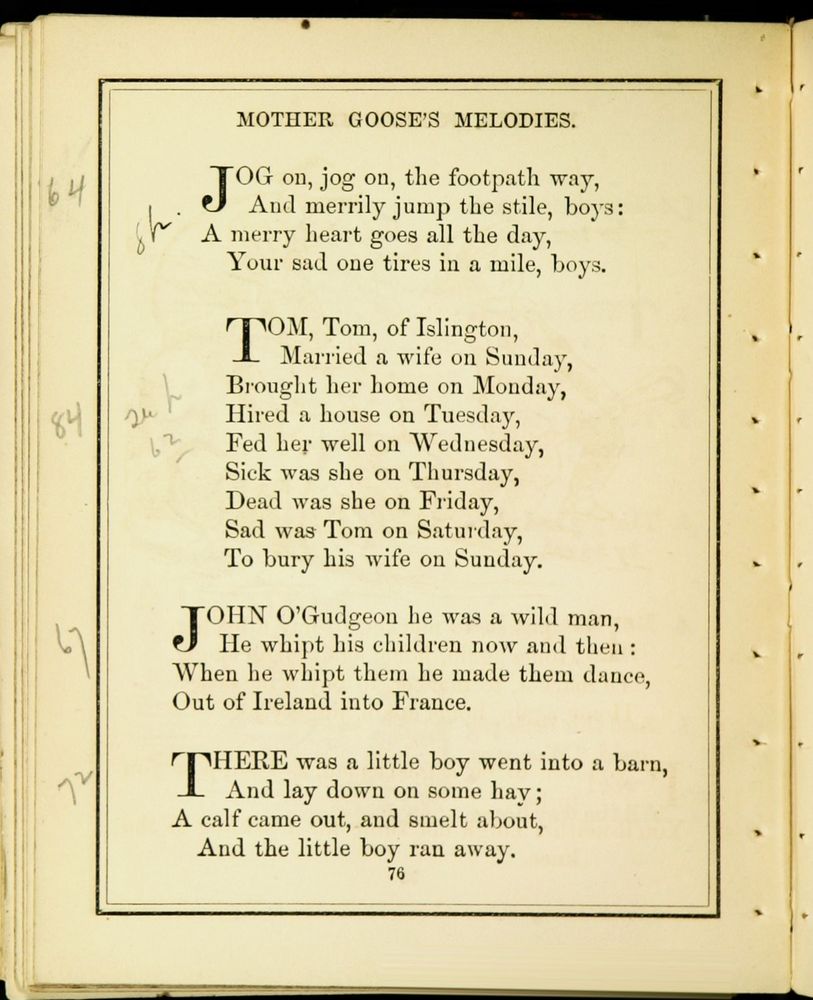 MOTHER GOOSE'S MELODIES.
64
JOG on, jog on, the footpath way,
And merrily jump the stile, boys:
A merry heart goes all the day,
Your sad one tires in a mile, boys.
TOM, Tom, of Islington,
Married a wife on Sunday,
Brought her home on Monday,
84
Hired a house on Tuesday,
62
Fed her well on Wednesday,
Sick was she on Thursday,
Dead was she on Friday,
Sad was Tom on Saturday,
To bury his wife on Sunday.
JOHN O'Gudgeon he was a wild man,
67
He whipt his children now and then:
When he whipt them he made them dance,
Out of Ireland into France.
THERE was a little boy went into a barn,
72
And lay down on some hay;
A calf came out, and smelt about,
And the little boy ran away.
76